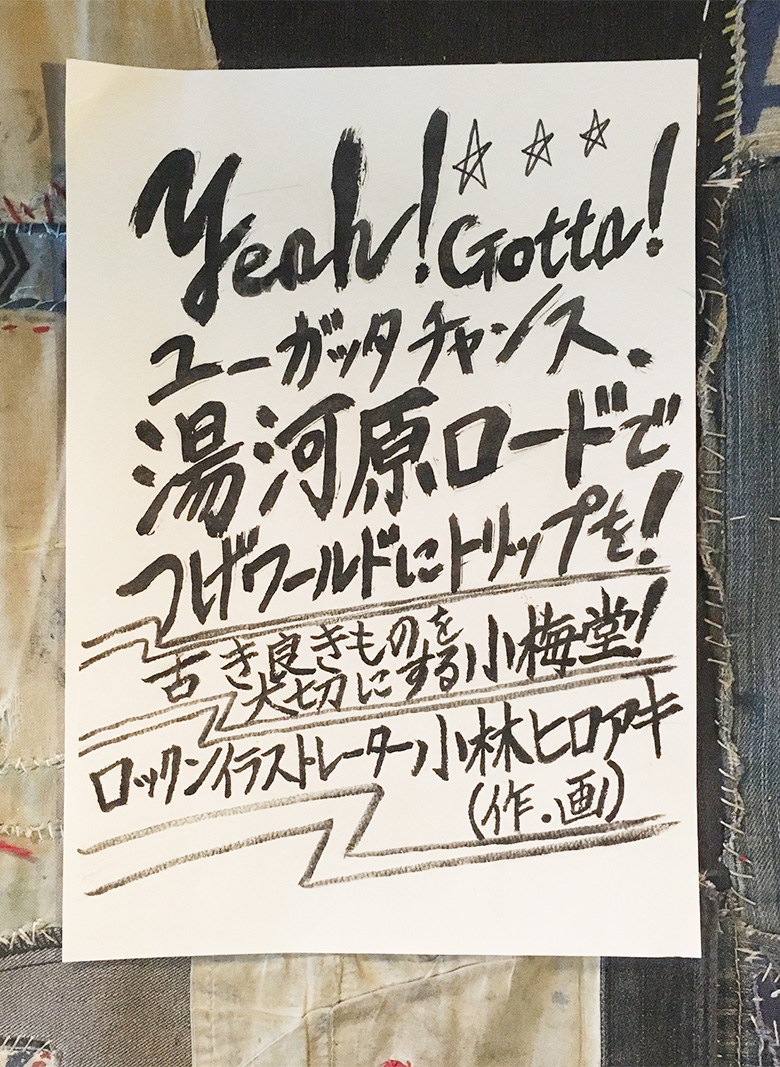 Yeah! Gotta!
ユーガッタチャンス.
湯河原ロードで
つげワールドにトリップを!
古き良きものを
大切にする小梅堂!
ロックンイラストレーター,小林ヒロアキ
(作.画)